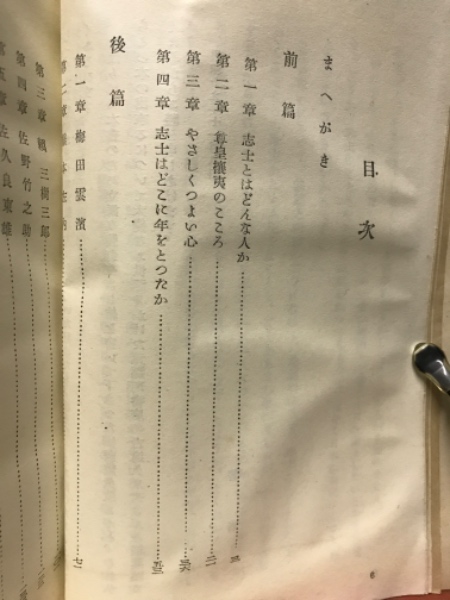 目次
まへがき
前篇
第一章 志士とはどんな人か
第二章 尊皇攘夷のこころ
第三章 やさしくつよい心
第四章 志士はどこに年をとつたか
後篇
第一章 梅田雲濱 七一
第二章
第三章 頼三樹三郎
第四章 佐野竹之助
第五章 佐久良東雄
6